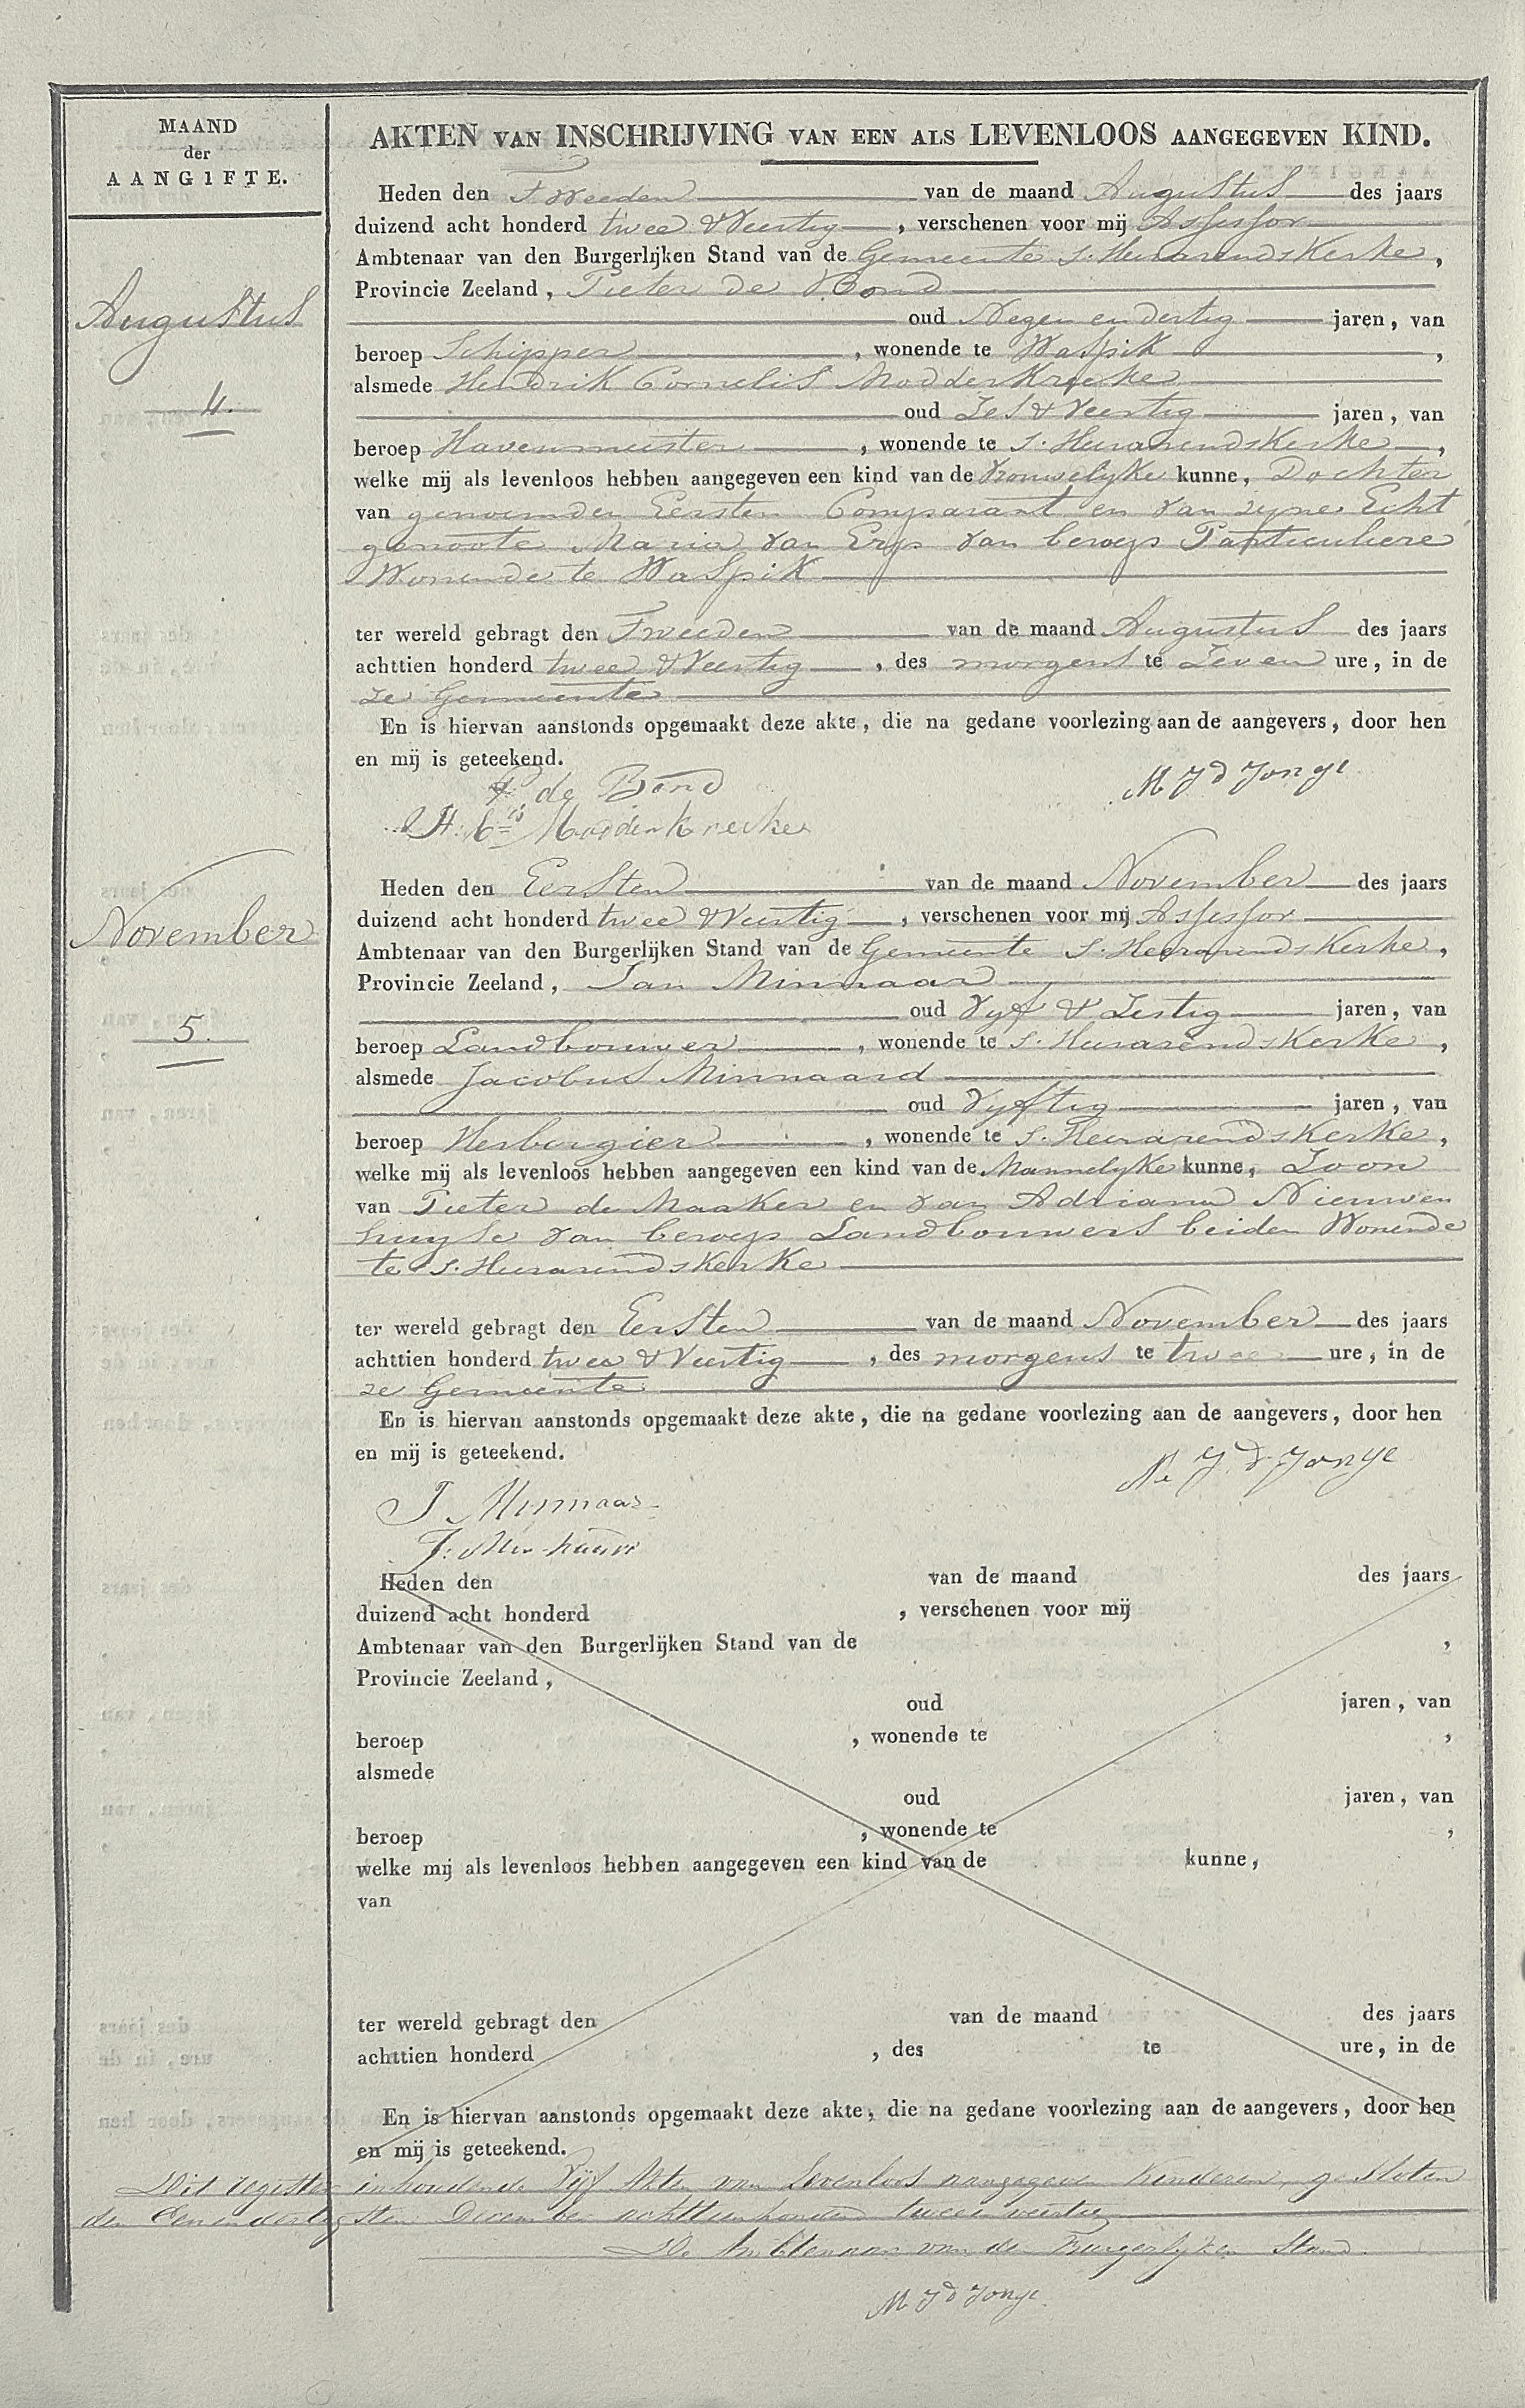 MAAND
der
AANGIFTE.
AKTEN VAN INSCHRIJVING VAN EEN ALS LEVENLOOS AANGEGEVEN KIND.
Augustus
4.
Heden den Tweeden van de maand Augustus des jaars
duizend acht honderd twee & Veertig, verschenen voor mij Assessor
Ambtenaar van den Burgerlijken Stand van de Gemeente s. Heerarendskerke,
Provincie Zeeland, Pieter de Bond
oud Negen en dertig jaren, van
beroep Schipper, wonende te Waspik,
alsmede Hendrik Cornelis Modderkreeke
oud Zes & Veertig jaren, van
beroep Havenmeester, wonende te s. Heerarendskerke,
welke mij als levenloos hebben aangegeven een kind van de Vrouwelyke kunne, Dochter
van genoemden Eersten Comparant en van zyne Echt
genoote Maria van Eryp van beroep Particuliere
Wonende te Waspik
ter wereld gebragt den Tweeden van de maand Augustus des jaars
achttien honderd twee & Veertig, des morgens te Zeven ure, in de
ze Gemeente
En is hiervan aanstonds opgemaakt deze akte, die na gedane voorlezing aan de aangevers, door hen
en mij is geteekend.
P de Bond
M J d Jonge
H: C=is Modderkreeke
November
5.
Heden den Eersten van de maand November des jaars
duizend acht honderd twee & Veertig, verschenen voor mij Assessor
Ambtenaar van den Burgerlijken Stand van de Gemeente s. Heerarendskerke,
Provincie Zeeland, Jan Minnaar
oud Vyf & Zestig jaren, van
beroep Landbouwer, wonende te s. Heerarendskerke,
alsmede Jacobus Minnaard
oud Vyftig jaren, van
beroep Herbergier, wonende te s. Heerarendskerke,
welke mij als levenloos hebben aangegeven een kind van de Mannelyke kunne, Zoon
van Pieter de Maaker en van Adriana Nieuwen
huyse van beroep Landbouwers beiden Wonende
te s. Heerarendskerke
ter wereld gebragt den Eersten van de maand November des jaars
achttien honderd twee & Veertig, des morgens te twee ure, in de
ze Gemeente
En is hiervan aanstonds opgemaakt deze akte, die na gedane voorlezing aan de aangevers, door hen
en mij is geteekend.
M J d Jonge
J Minnaar
Heden den van de maand des jaars
duizend acht honderd , verschenen voor mij
Ambtenaar van den Burgerlijken Stand van de ,
Provincie Zeeland,
oud jaren, van
beroep , wonende te ,
alsmede
oud jaren, van
beroep , wonende te ,
welke mij als levenloos hebben aangegeven een kind van de kunne,
van
ter wereld gebragt den van de maand des jaars
achttien honderd , des te ure, in de
En is hiervan aanstonds opgemaakt deze akte, die na gedane voorlezing aan de aangevers, door hen
en mij is geteekend.
Dit register inhoudende Vijf Akten van Levenloos aangegeven Kinderen, gesloten
den Een en dertigsten December achttienhonderd twee en veertig
De Ambtenaar van den Burgerlijken Stand.
M J d Jonge